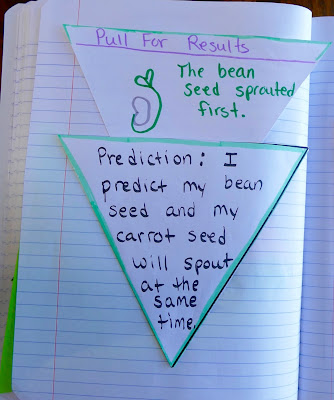 Pull For Results
The bean
seed sprouted
first.
Prediction: I
predict my bean
seed and my
carrot seed
will spout
at the
same
time.